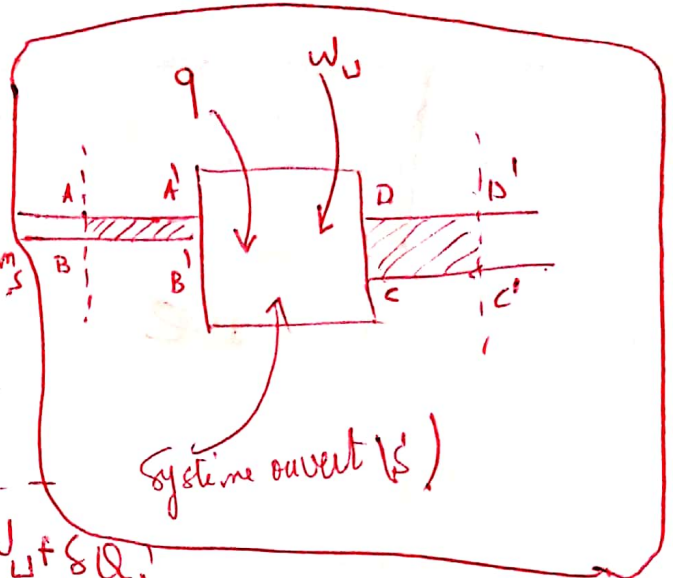 q
Wᵤ
A
A'
D
D'
B
B'
C
C'
Système ouvert (S)
+ δQ